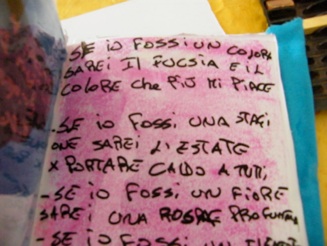 SE IO FOSSI UN COLORE
SAREI IL FUCSIA E IL
COLORE CHE PIÙ MI PIACE
-SE IO FOSSI UNA STAGI
ONE SAREI L'ESTATE
X PORTARE CALDO A TUTTI
-SE IO FOSSI UN FIORE
SAREI UNA ROSA
-SE IO FOSSI UN